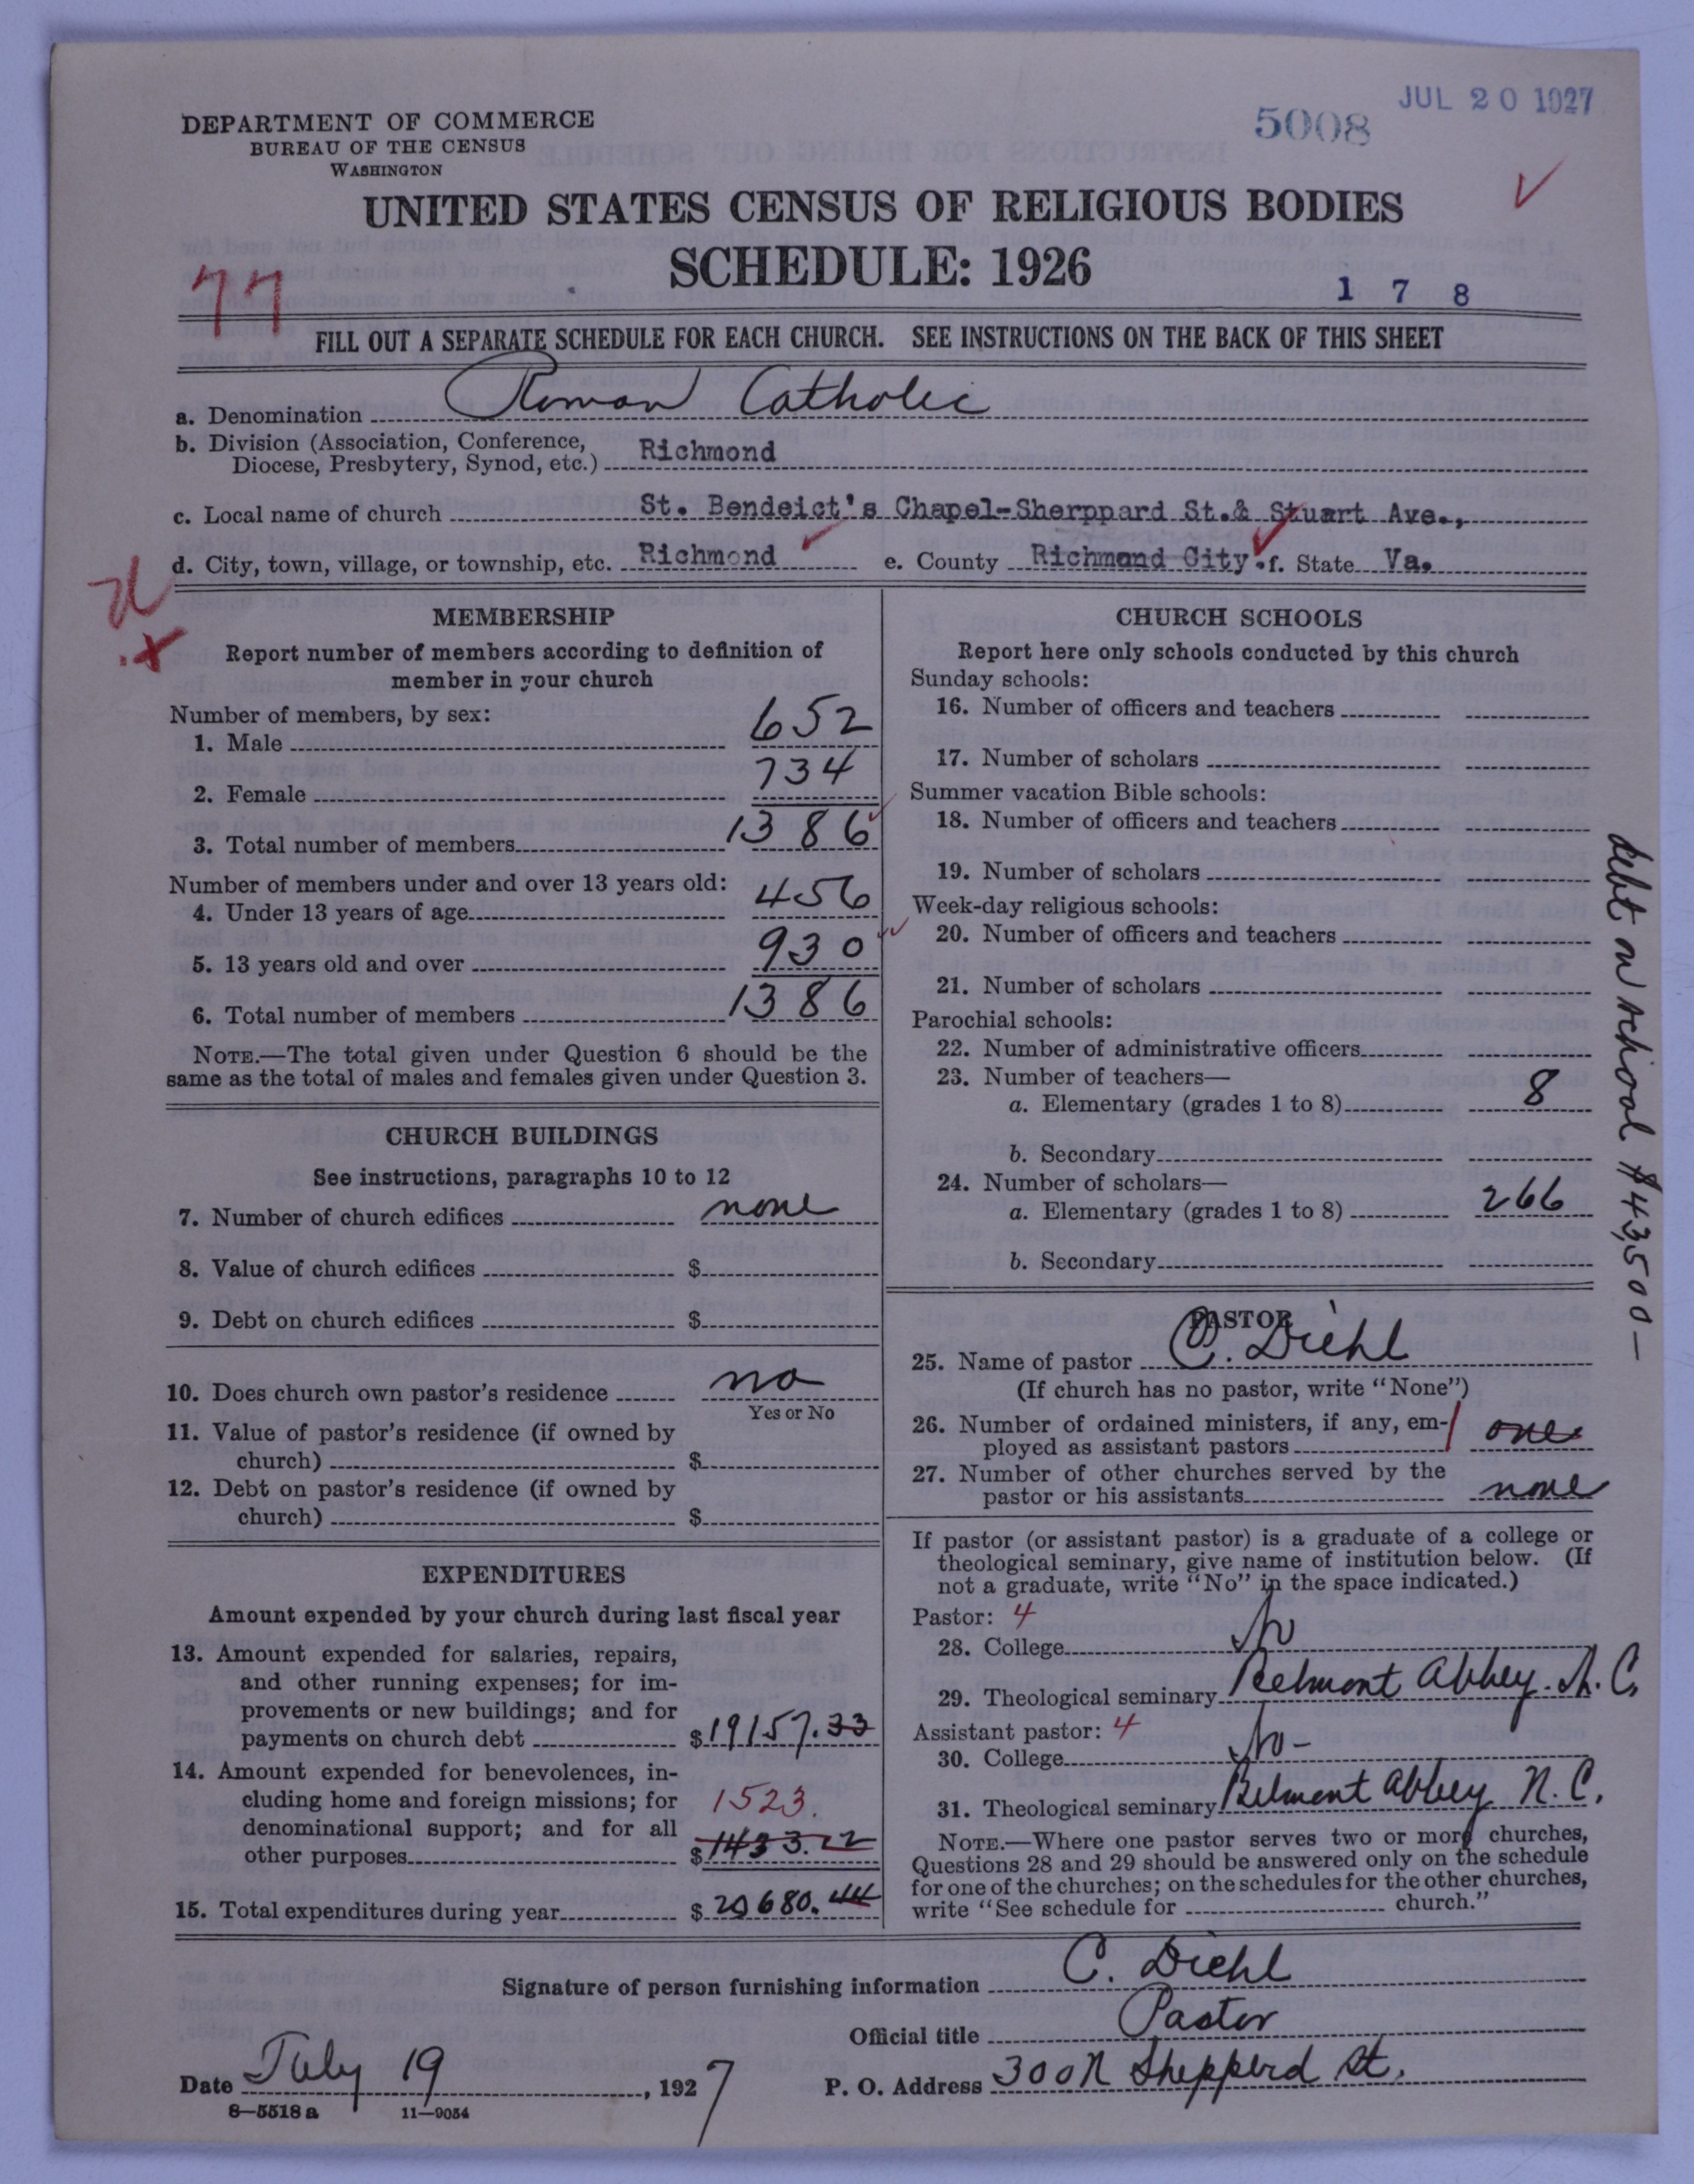 JUL 20 1927
5008
DEPARTMENT OF COMMERCE
BUREAU OF THE CENSUS
WASHINGTON
UNITED STATES CENSUS OF RELIGIOUS BODIES
SCHEDULE: 1926
77
1 7 8
FILL OUT A SEPARATE SCHEDULE FOR EACH CHURCH. SEE INSTRUCTIONS ON THE BACK OF THIS SHEET
a. Denomination Roman Catholic
b. Division (Association, Conference,
Diocese, Presbytery, Synod, etc.) Richmond
c. Local name of church St. Bendeict's Chapel-Sherppard St.& Stuart Ave.,
d. City, town, village, or township, etc. Richmond e. County Richmond City. f. State Va.
MEMBERSHIP
Report number of members according to definition of
member in your church
Number of members, by sex:
1. Male 652
2. Female 734
3. Total number of members 1386
Number of members under and over 13 years old:
4. Under 13 years of age 456
5. 13 years old and over 930
6. Total number of members 1386
NOTE.—The total given under Question 6 should be the
same as the total of males and females given under Question 3.
CHURCH BUILDINGS
See instructions, paragraphs 10 to 12
7. Number of church edifices none
8. Value of church edifices $
9. Debt on church edifices $
10. Does church own pastor's residence no
Yes or No
11. Value of pastor's residence (if owned by
church) $
12. Debt on pastor's residence (if owned by
church) $
EXPENDITURES
Amount expended by your church during last fiscal year
13. Amount expended for salaries, repairs,
and other running expenses; for im-
provements or new buildings; and for
payments on church debt $19157.33
14. Amount expended for benevolences, in-
cluding home and foreign missions; for 1523.
denominational support; and for all
other purposes $1433.22
15. Total expenditures during year $20680.44
CHURCH SCHOOLS
Report here only schools conducted by this church
Sunday schools:
16. Number of officers and teachers
17. Number of scholars
Summer vacation Bible schools:
18. Number of officers and teachers
19. Number of scholars
Week-day religious schools:
20. Number of officers and teachers
21. Number of scholars
Parochial schools:
22. Number of administrative officers
23. Number of teachers—
a. Elementary (grades 1 to 8) 8
b. Secondary
24. Number of scholars—
a. Elementary (grades 1 to 8) 266
b. Secondary
PASTOR
25. Name of pastor C. Diehl
(If church has no pastor, write "None")
26. Number of ordained ministers, if any, em-
ployed as assistant pastors 1 one
27. Number of other churches served by the
pastor or his assistants none
If pastor (or assistant pastor) is a graduate of a college or
theological seminary, give name of institution below. (If
not a graduate, write "No" in the space indicated.)
Pastor: 4
28. College No
29. Theological seminary Belmont Abbey. N.C.
Assistant pastor: 4
30. College No-
31. Theological seminary Belmont Abbey N.C.
NOTE.—Where one pastor serves two or more churches,
Questions 28 and 29 should be answered only on the schedule
for one of the churches; on the schedules for the other churches,
write "See schedule for church."
debt on school $43,500—
Signature of person furnishing information C. Diehl
Official title Pastor
Date July 19, 1927 P. O. Address 300 N Shepperd St.
8—5518 a 11—9054